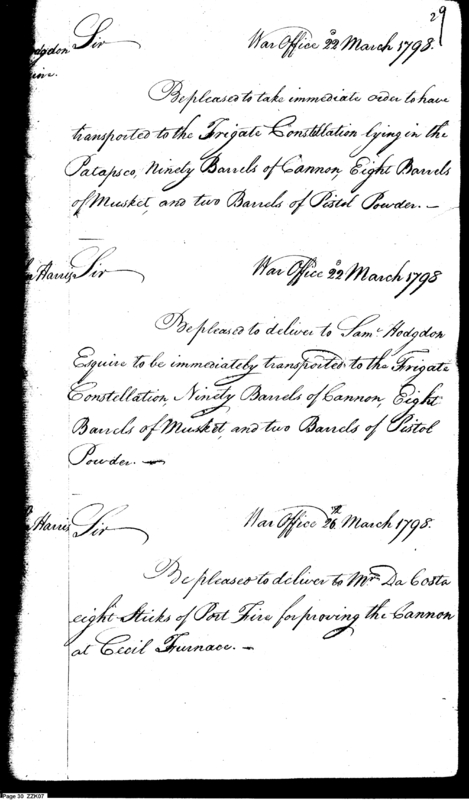 29
Sir War Office 22d March 1798.
odgdon
uire.
Be pleased to take immediate order to have
transported to the Frigate Constellation lying in the
Patapsco, Ninety Barrels of Cannon, Eight Barrels
of Musket, and two Barrels of Pistol Powder. —
Harris Sir War Office 22d March 1798
Be pleased to deliver to Saml Hodgdon
Esquire to be immediately transported to the Frigate
Constellation, Ninety Barrels of Cannon, Eight
Barrels of Musket, and two Barrels of Pistol
Powder. —
Harris Sir War Office 26th March 1798.
Be pleased to deliver to Mr Da Costa
eight Sticks of Port Fire for proving the Cannon
at Cecil Furnace. —
Page 30 ZZK07